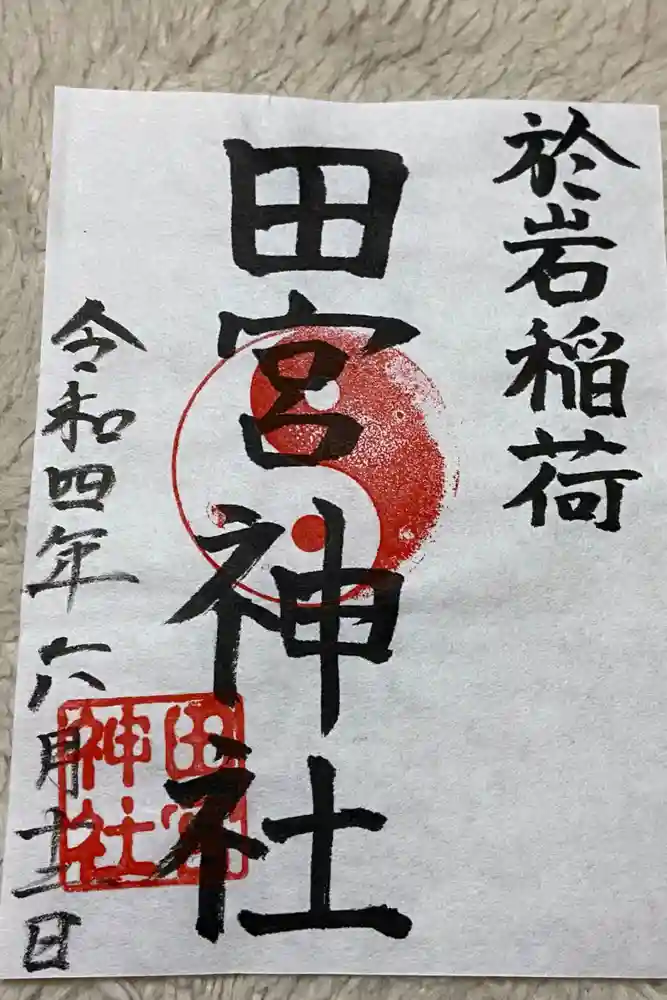 於岩稲荷
田宮神社
令和四年六月 日
田宮
神社